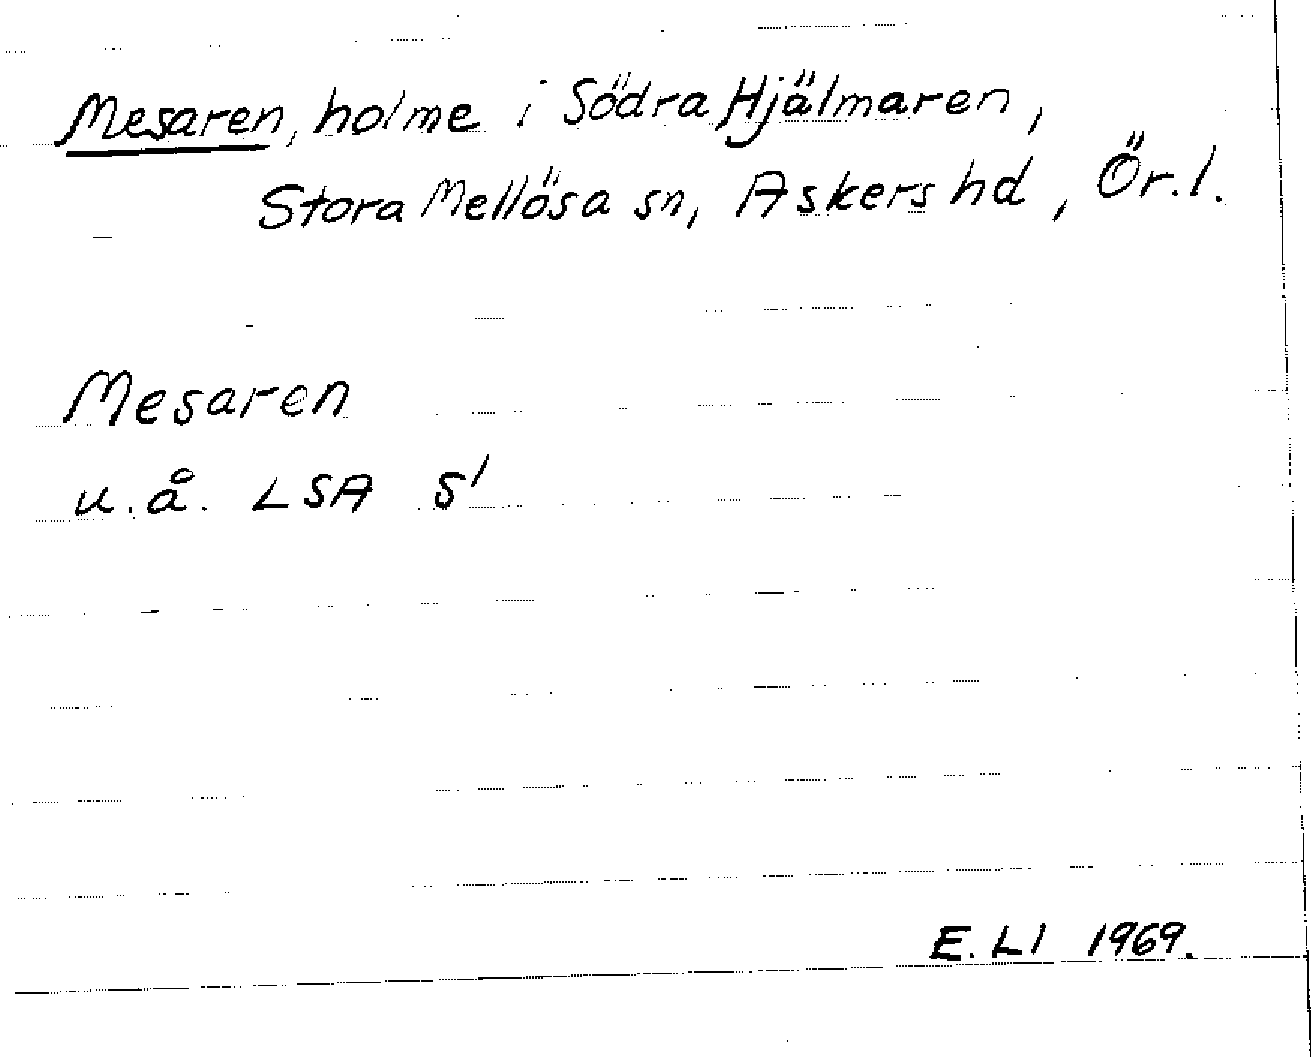 Mesaren, holme i Södra Hjälmaren,
Stora Mellösa sn, Askers hd, Ör. l.
Mesaren
u.å. LSA S'
E. Ll 1969.